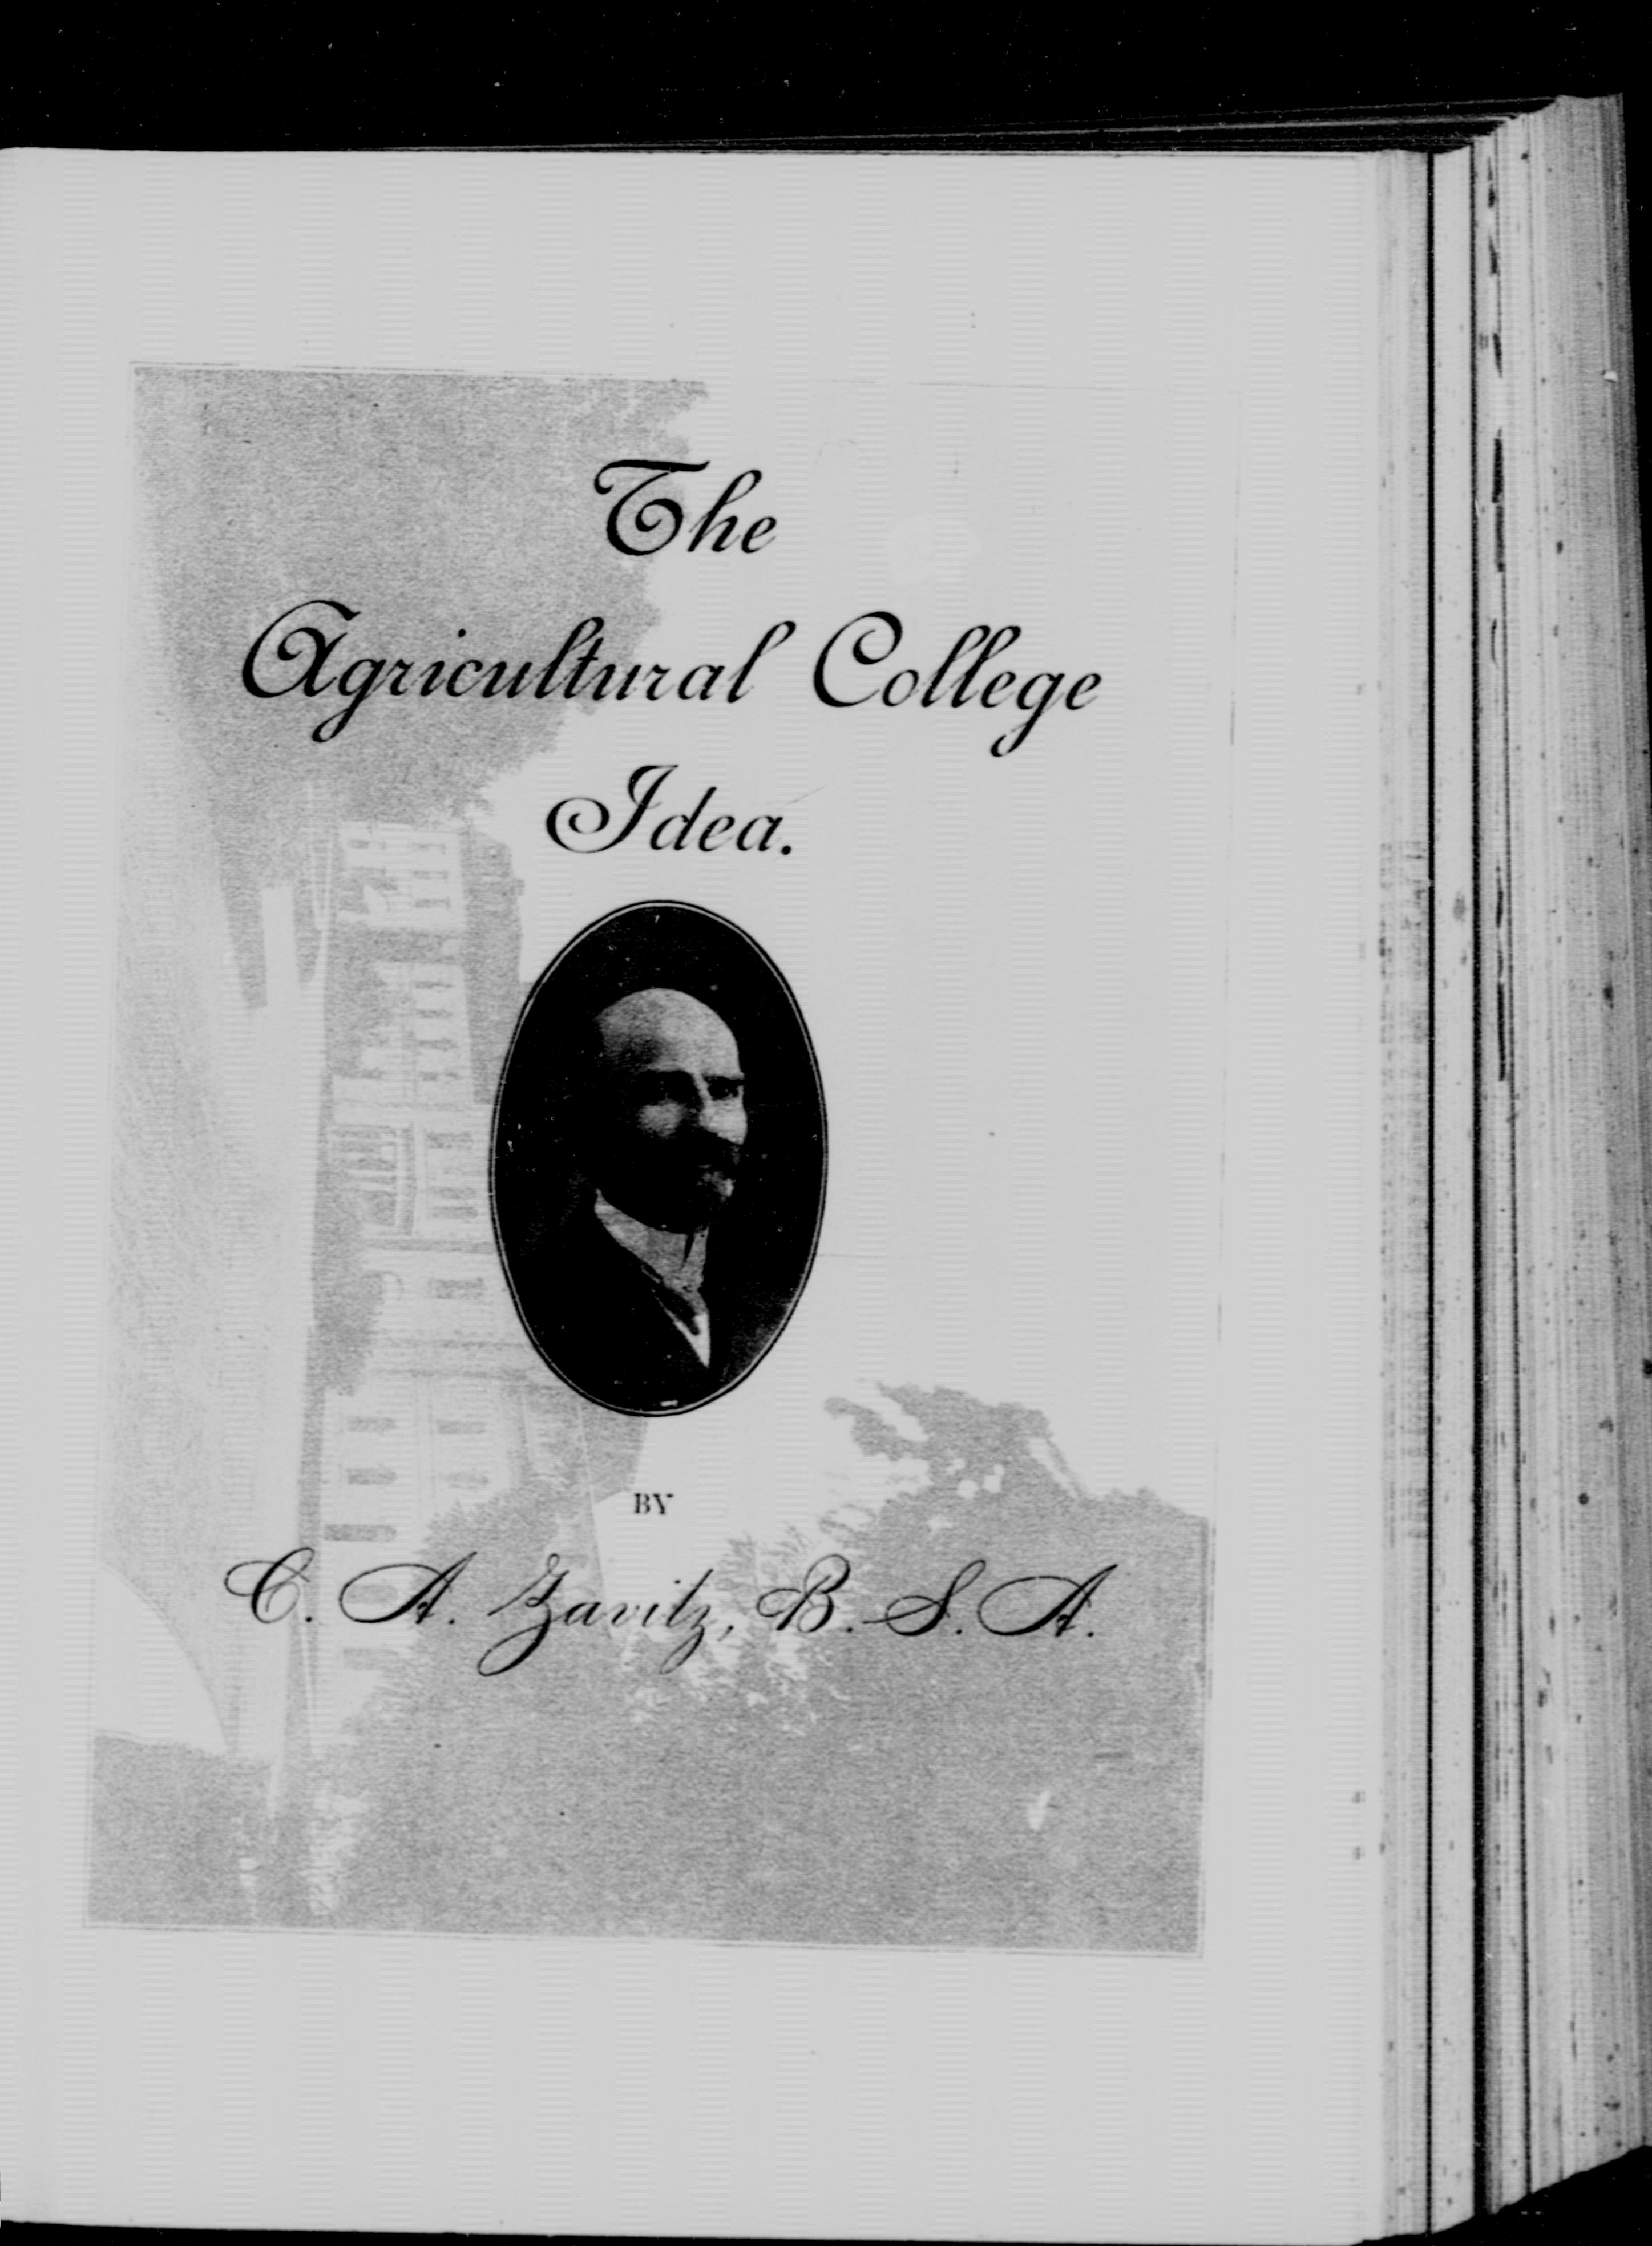 The
Agricultural College
Idea.
BY
C. A. Zavitz, B. S. A.